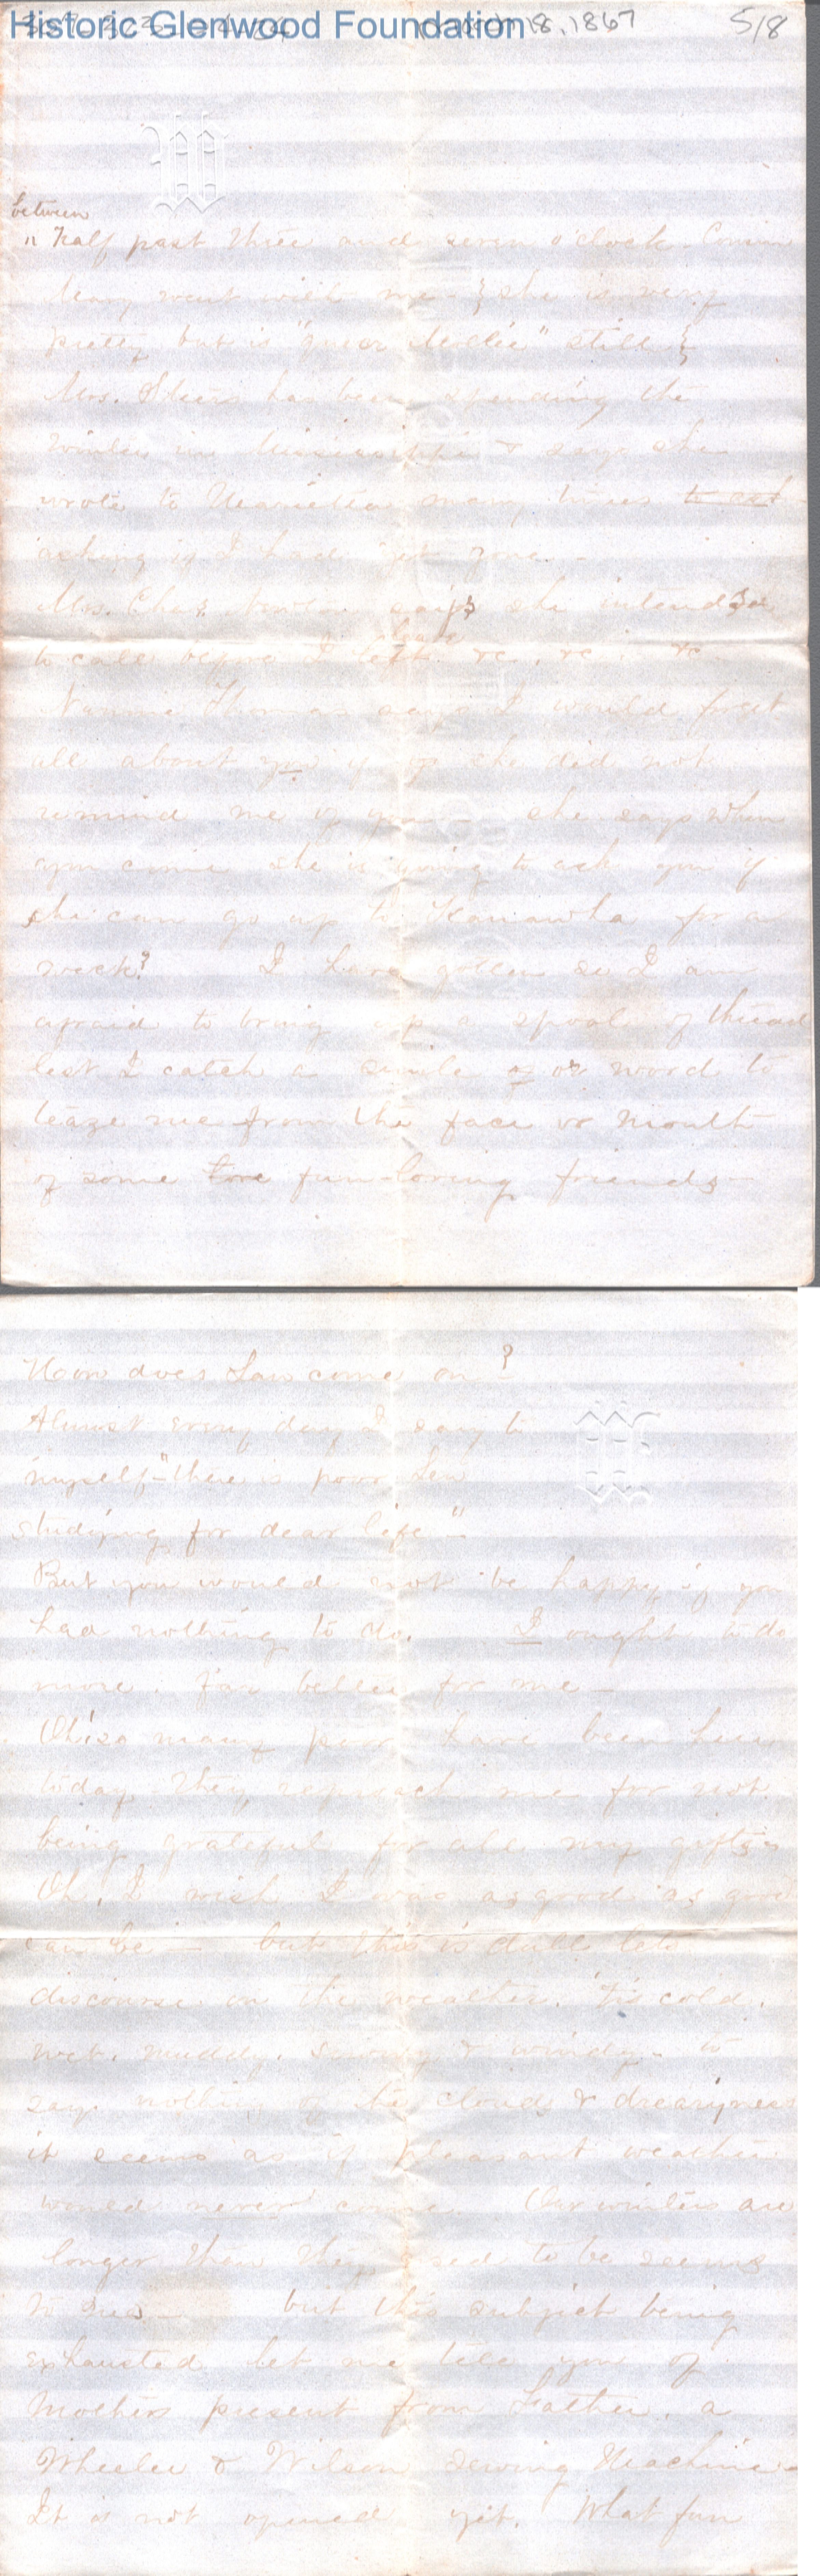 Historic Glenwood Foundation
18, 1867
5/8
W
between
" half past three and seven o'clock - Cousin
Mary went with me - & she is very
pretty but is "queer Mollie" still
Mrs. has been spending the
winter in Mississippi & says she
wrote to Henrietta many times
asking if I had yet gone -
Mrs. Chas. says she intended
leave
to call before I left &c, &c. &c
Nannie Thomas says I would forget
all about you if she did not
remind me of you she says when
you come she is going to ask you if
she can go up to Kanawha for a
week? I have gotten so I am
afraid to bring up a spool of thread
lest I catch a smile or word to
teaze me from the face or mouth
of some fun-loving friends -
How does Law come on?
Almost every day I say to
myself - "there is poor Len
studying for dear life" -
But you would not be happy if you
had nothing to do. I ought to do
more. far better for me -
Oh! so many poor have been here
today they reproach me for not
being grateful for all my gifts
Oh, I wish I was as good as good
can be - but this is dull lets
discourse on the weather. 'Tis cold,
wet, muddy, snowy & windy - to
say nothing of the clouds & drearyness
it seems as if pleasant weather
would never come. Our winters are
longer than they used to be seems
to me - but this subject being
exhausted let me tell you of
Mothers present from Father, a
Wheeler & Wilson Sewing Machine -
It is not opened yet. What fun